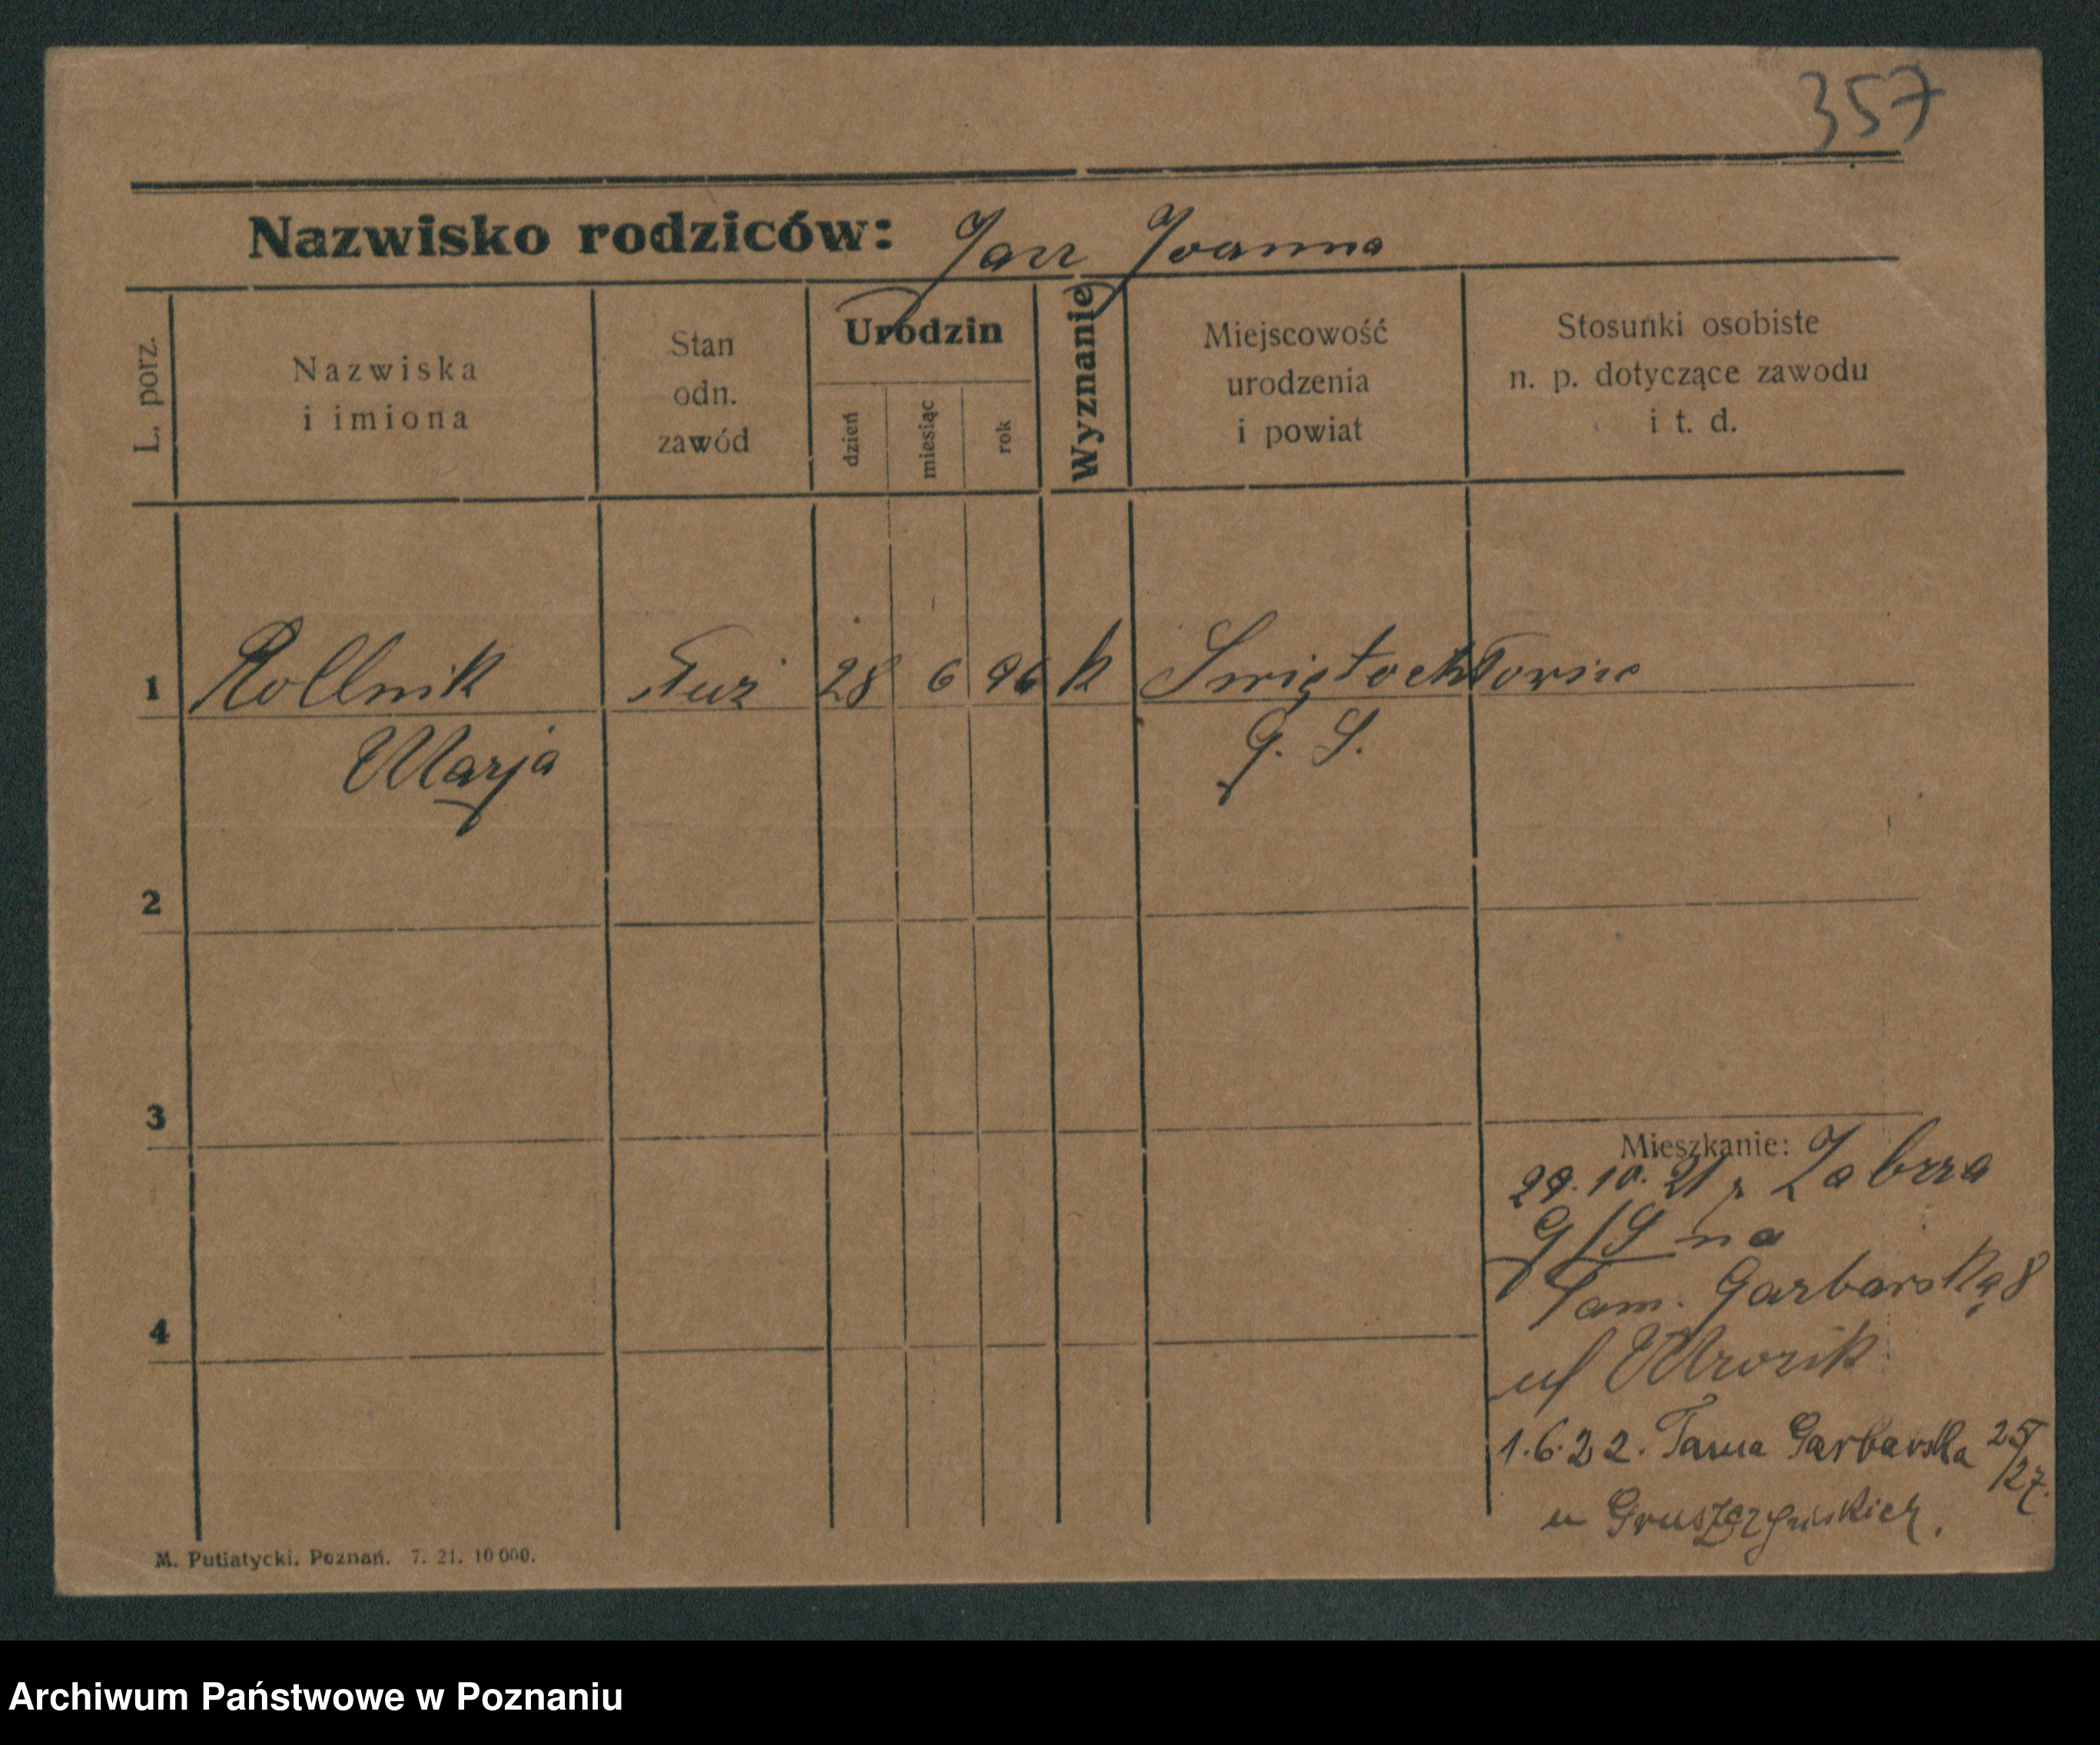 357
Nazwisko rodziców: Jan Joanna
L. porz.
Nazwiska
i imiona
Stan
odn.
zawód
Urodzin
dzień
miesiąc
rok
Wyznanie
Miejscowość
urodzenia
i powiat
Stosunki osobiste
n. p. dotyczące zawodu
i t. d.
1 Rollnik 28 6 96 k Świętochłowice
Marja G. S.
2
3
Mieszkanie:
29.10.21 z Zabrza
G/S na
Tam. Garbarską 8
u/ Mrozik
4
1.6.22. Tama Garbarska 25/27.
u Gruszczyńskich.
M. Putiatycki. Poznań. 7. 21. 10 000.
Archiwum Państwowe w Poznaniu